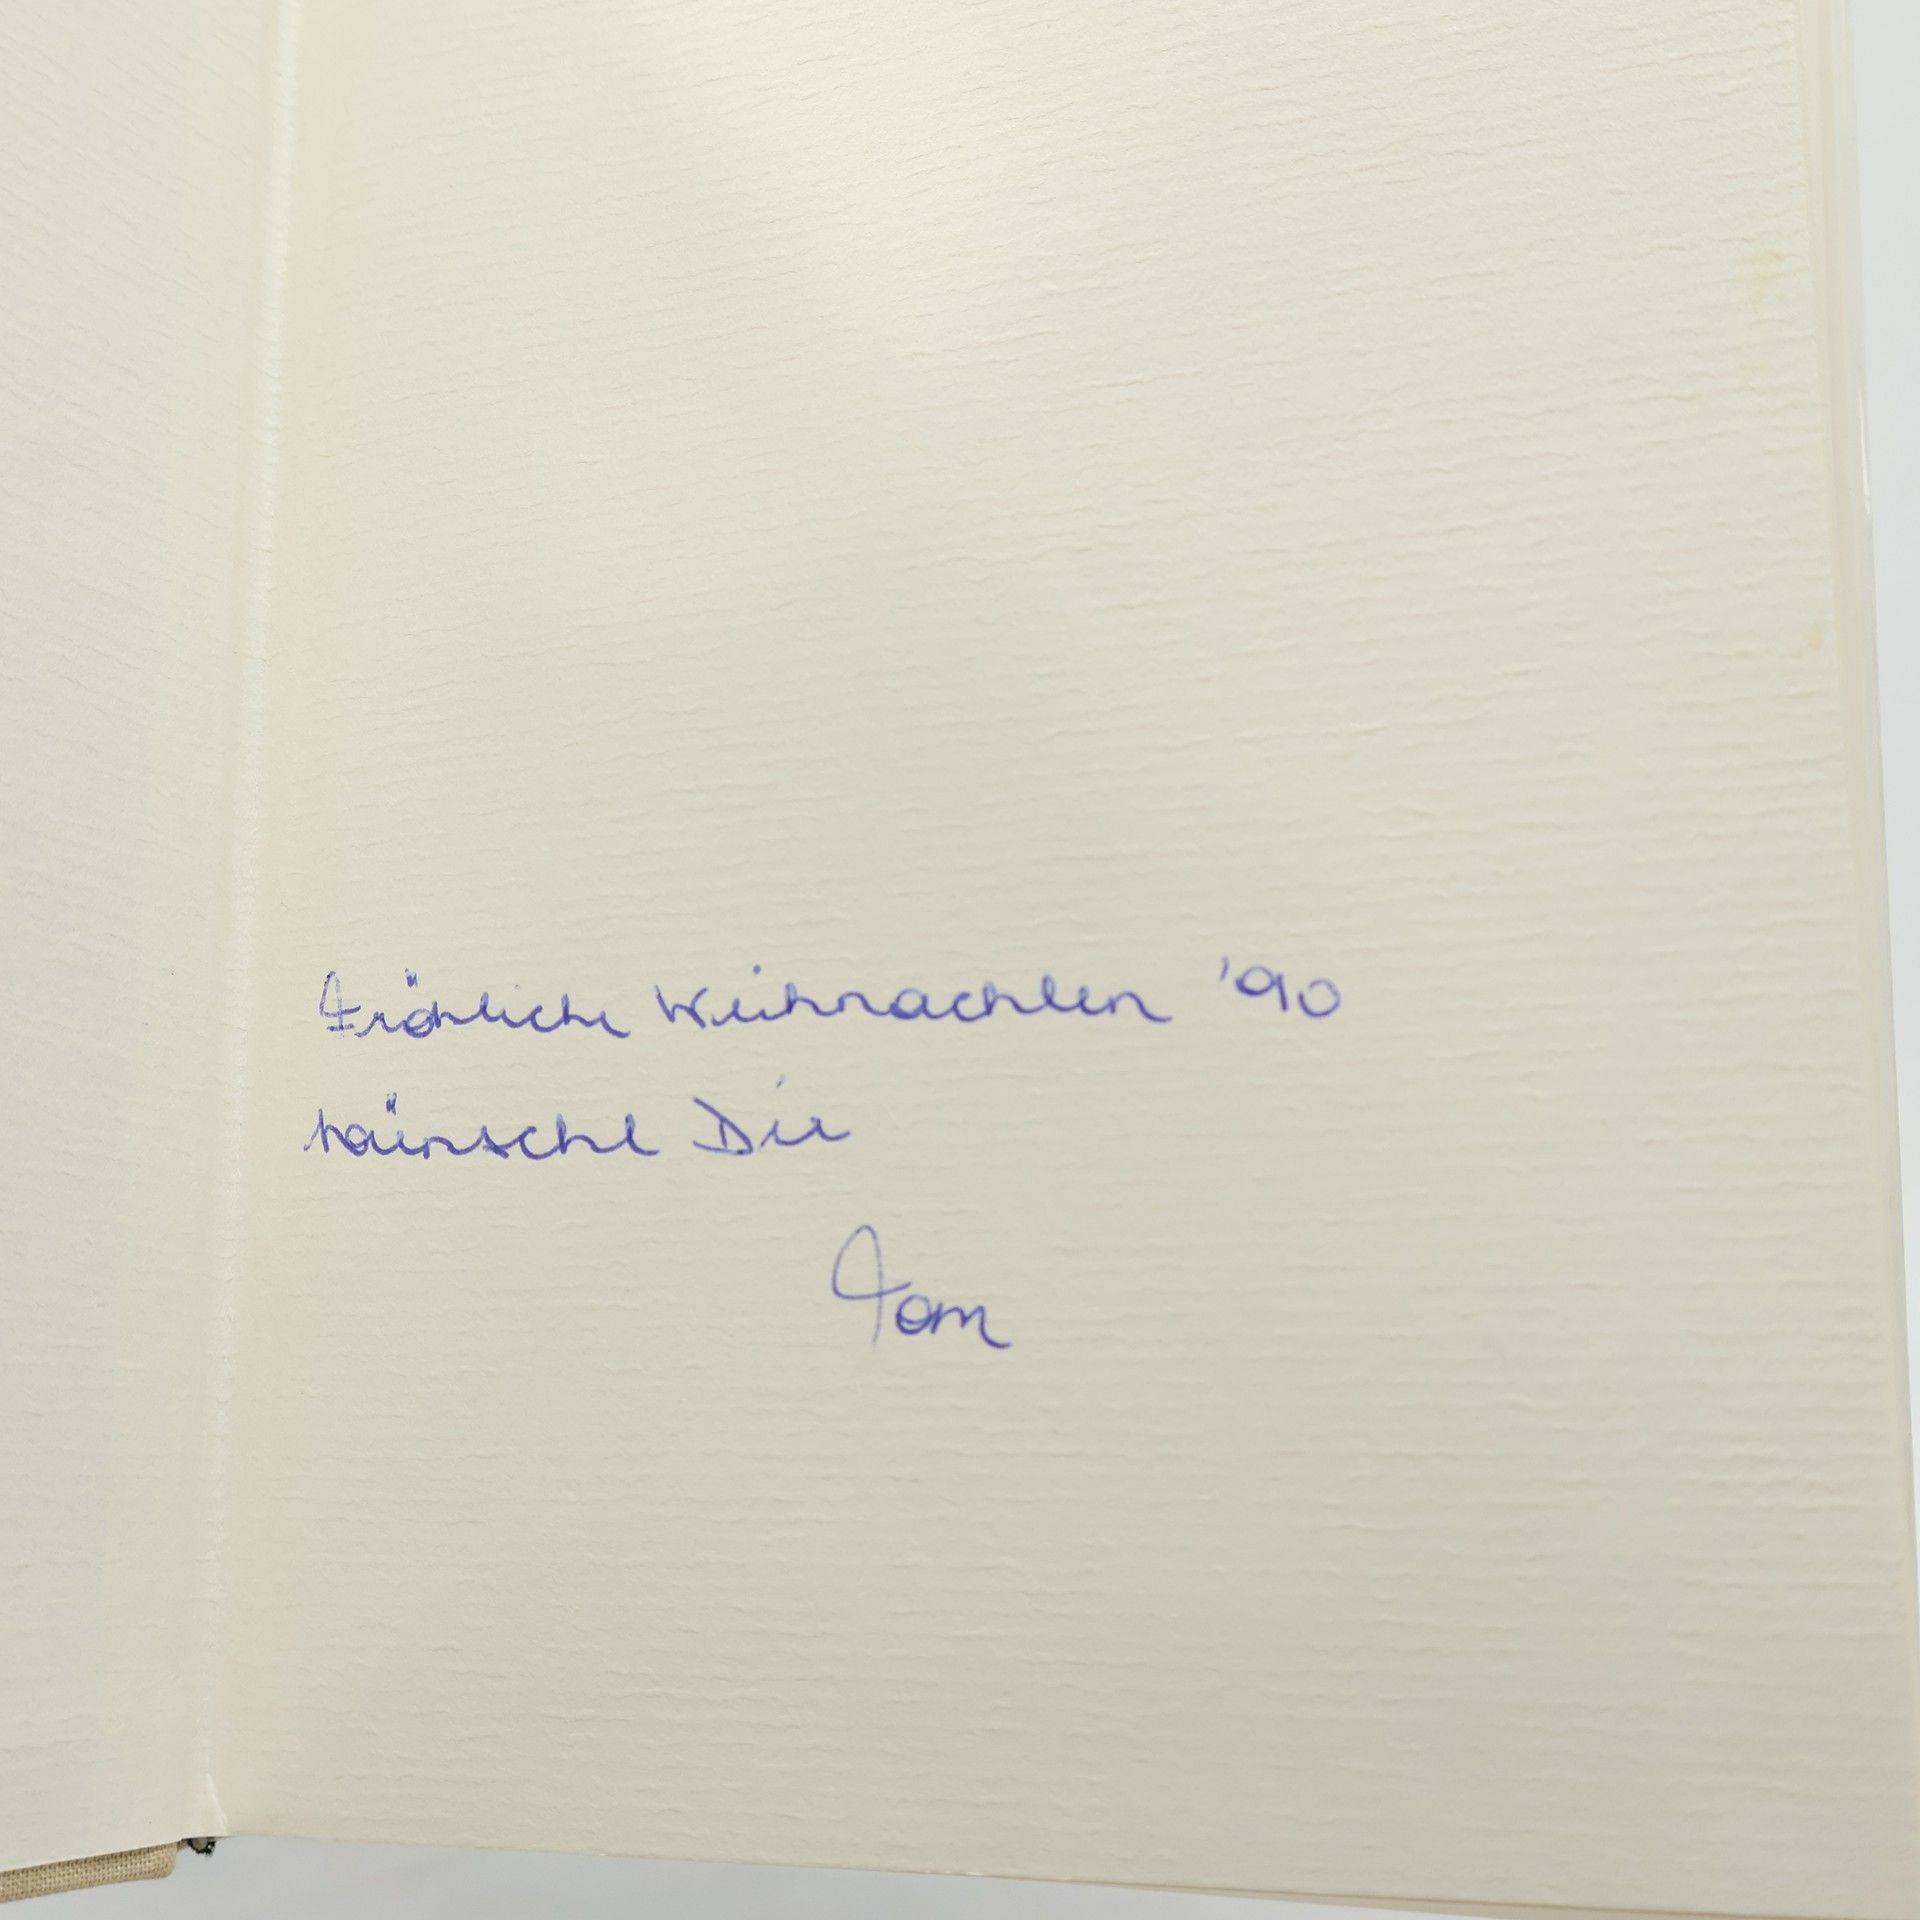 Fröhliche Weihnachten '90
wünscht Dir
Tom